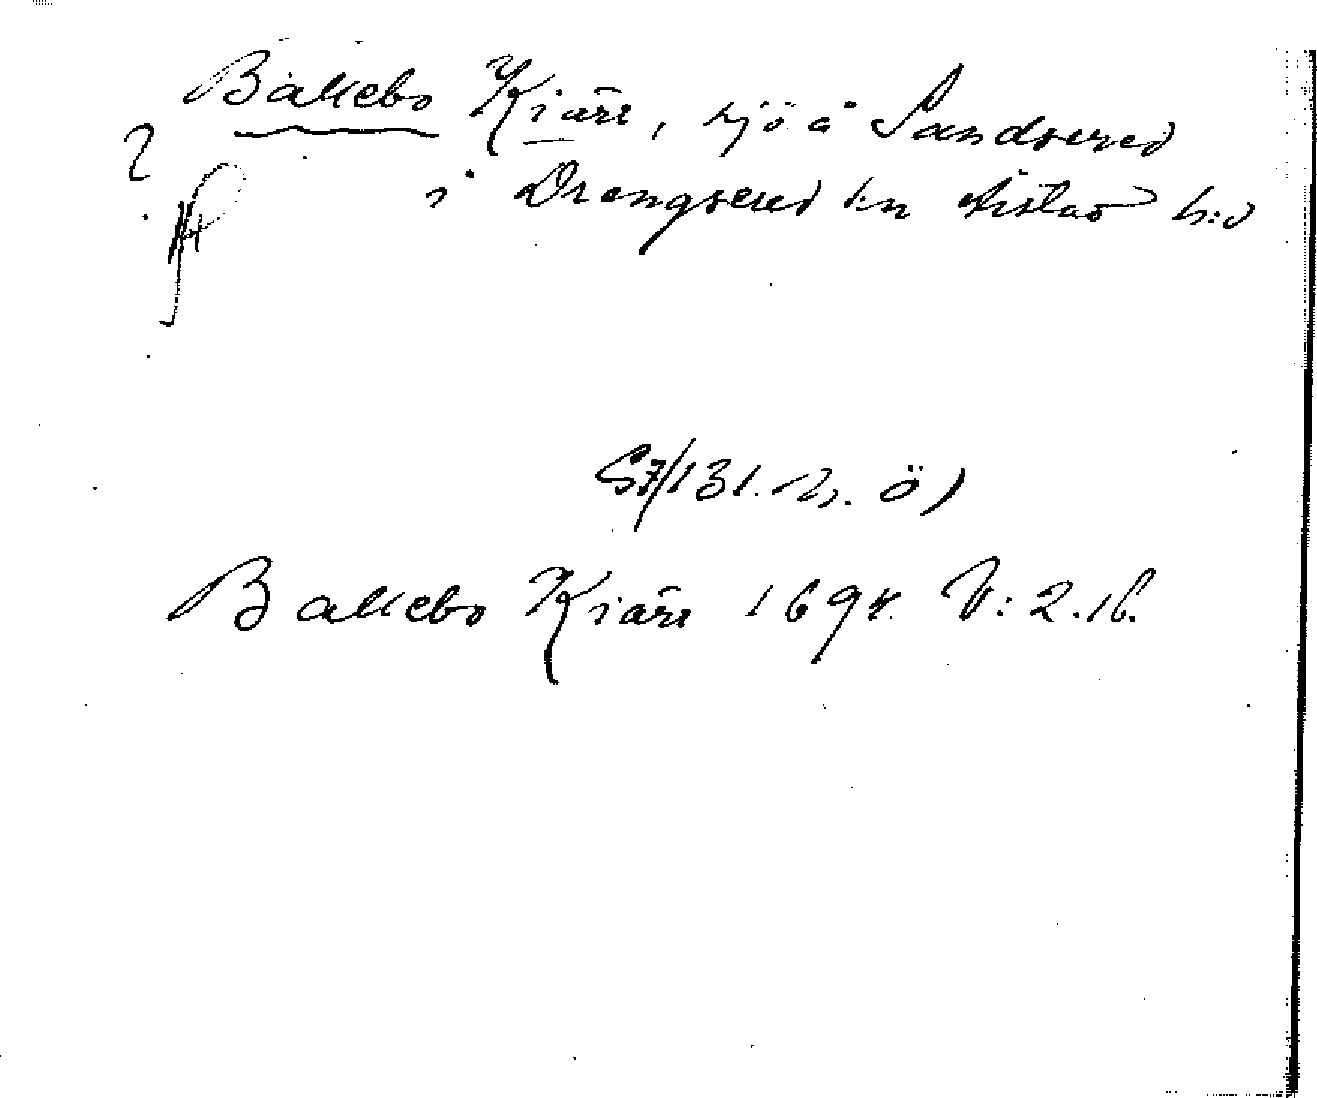 Båkebo Kiärr, sjö å Sandsered
?
i Drengsered sn Årstad h:d
S7/131. N. Ö)
Bakebo Kiärr 1694. V: 2.16.